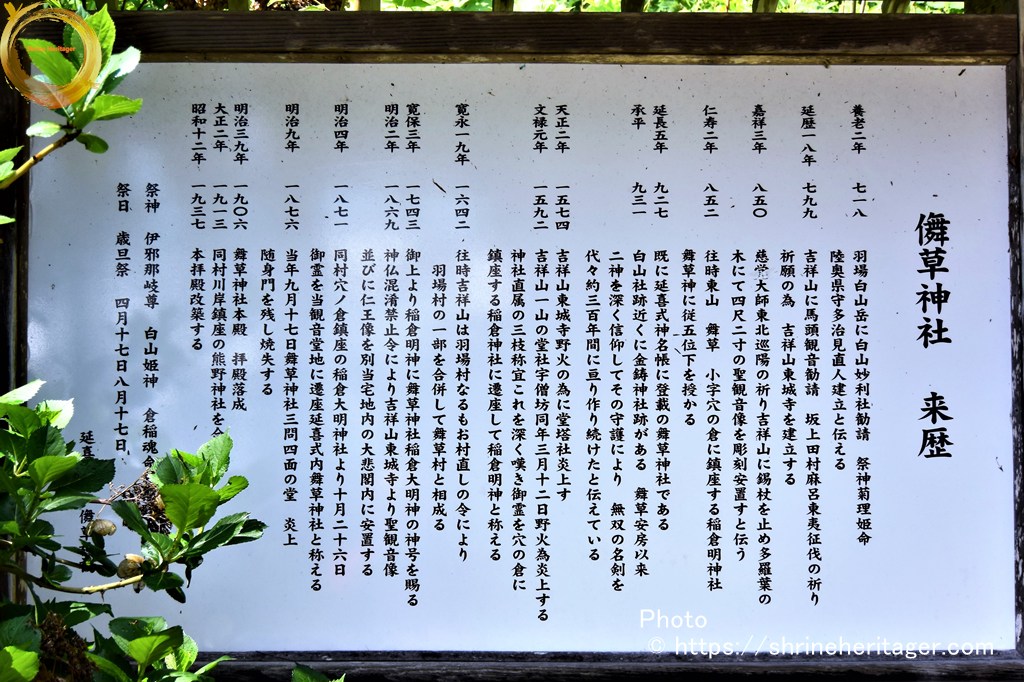 儛草神社 来歴
養老二年 七一八 羽場白山岳に白山妙利社勧請 祭神菊理姫命
陸奥県守多治見直人建立と伝える
延歴一八年 七九九 吉祥山に馬頭観音勧請 坂上田村麻呂東夷征伐の祈り
祈願の為 吉祥山東城寺を建立する
嘉祥三年 八五〇 慈覚大師東北巡陽の祈り吉祥山に錫杖を止め多羅葉の
木にて四尺二寸の聖観音像を彫刻安置すと伝う
仁寿二年 八五二 往時東山 舞草 小字穴の倉に鎮座する稲倉明神社
舞草神に従五位下を授かる
延長五年 九二七 既に延喜式神名帳に登載の舞草神社である
承平 九三一 白山社跡近くに金鋳神社跡がある 舞草安房以来
二神を深く信仰してその守護により 無双の名剣を
代々約三百年間に亘り作り続けたと伝えている
天正二年 一五七四 吉祥山東城寺野火の為に堂塔社炎上す
文禄元年 一五九二 吉祥山一山の堂社宇僧坊同年三月十二日野火為炎上する
神社直属の三枝称宜これを深く嘆き御霊を穴の倉に
鎮座する稲倉神社に遷座して稲倉明神と称える
寛永一九年 一六四二 往時吉祥山は羽場村なるもお村直しの令により
羽場村の一部を合併して舞草村と相成る
寛保三年 一七四三 御上より稲倉明神に舞草神社稲倉大明神の神号を賜る
明治二年 一八六九 神仏混淆禁止令により吉祥山東城寺より聖観音像
並びに仁王像を別当宅地内の大悲閣内に安置する
明治四年 一八七一 同村穴ノ倉鎮座の稲倉大明神社より十月二十六日
御霊を当観音堂地に遷座延喜式内舞草神社と称える
明治九年 一八七六 当年九月十七日舞草神社三問四面の堂 炎上
随身門を残し焼失する
明治三九年 一九〇六 舞草神社本殿 拝殿落成
大正二年 一九一三 同村川岸鎮座の熊野神社を
昭和十二年 一九三七 本拝殿改築する
祭神 伊邪那岐尊 白山姫神 倉稲魂命
祭日 歳旦祭 四月十七日八月十七日
延喜
Photo
© https://shrineheritager.com